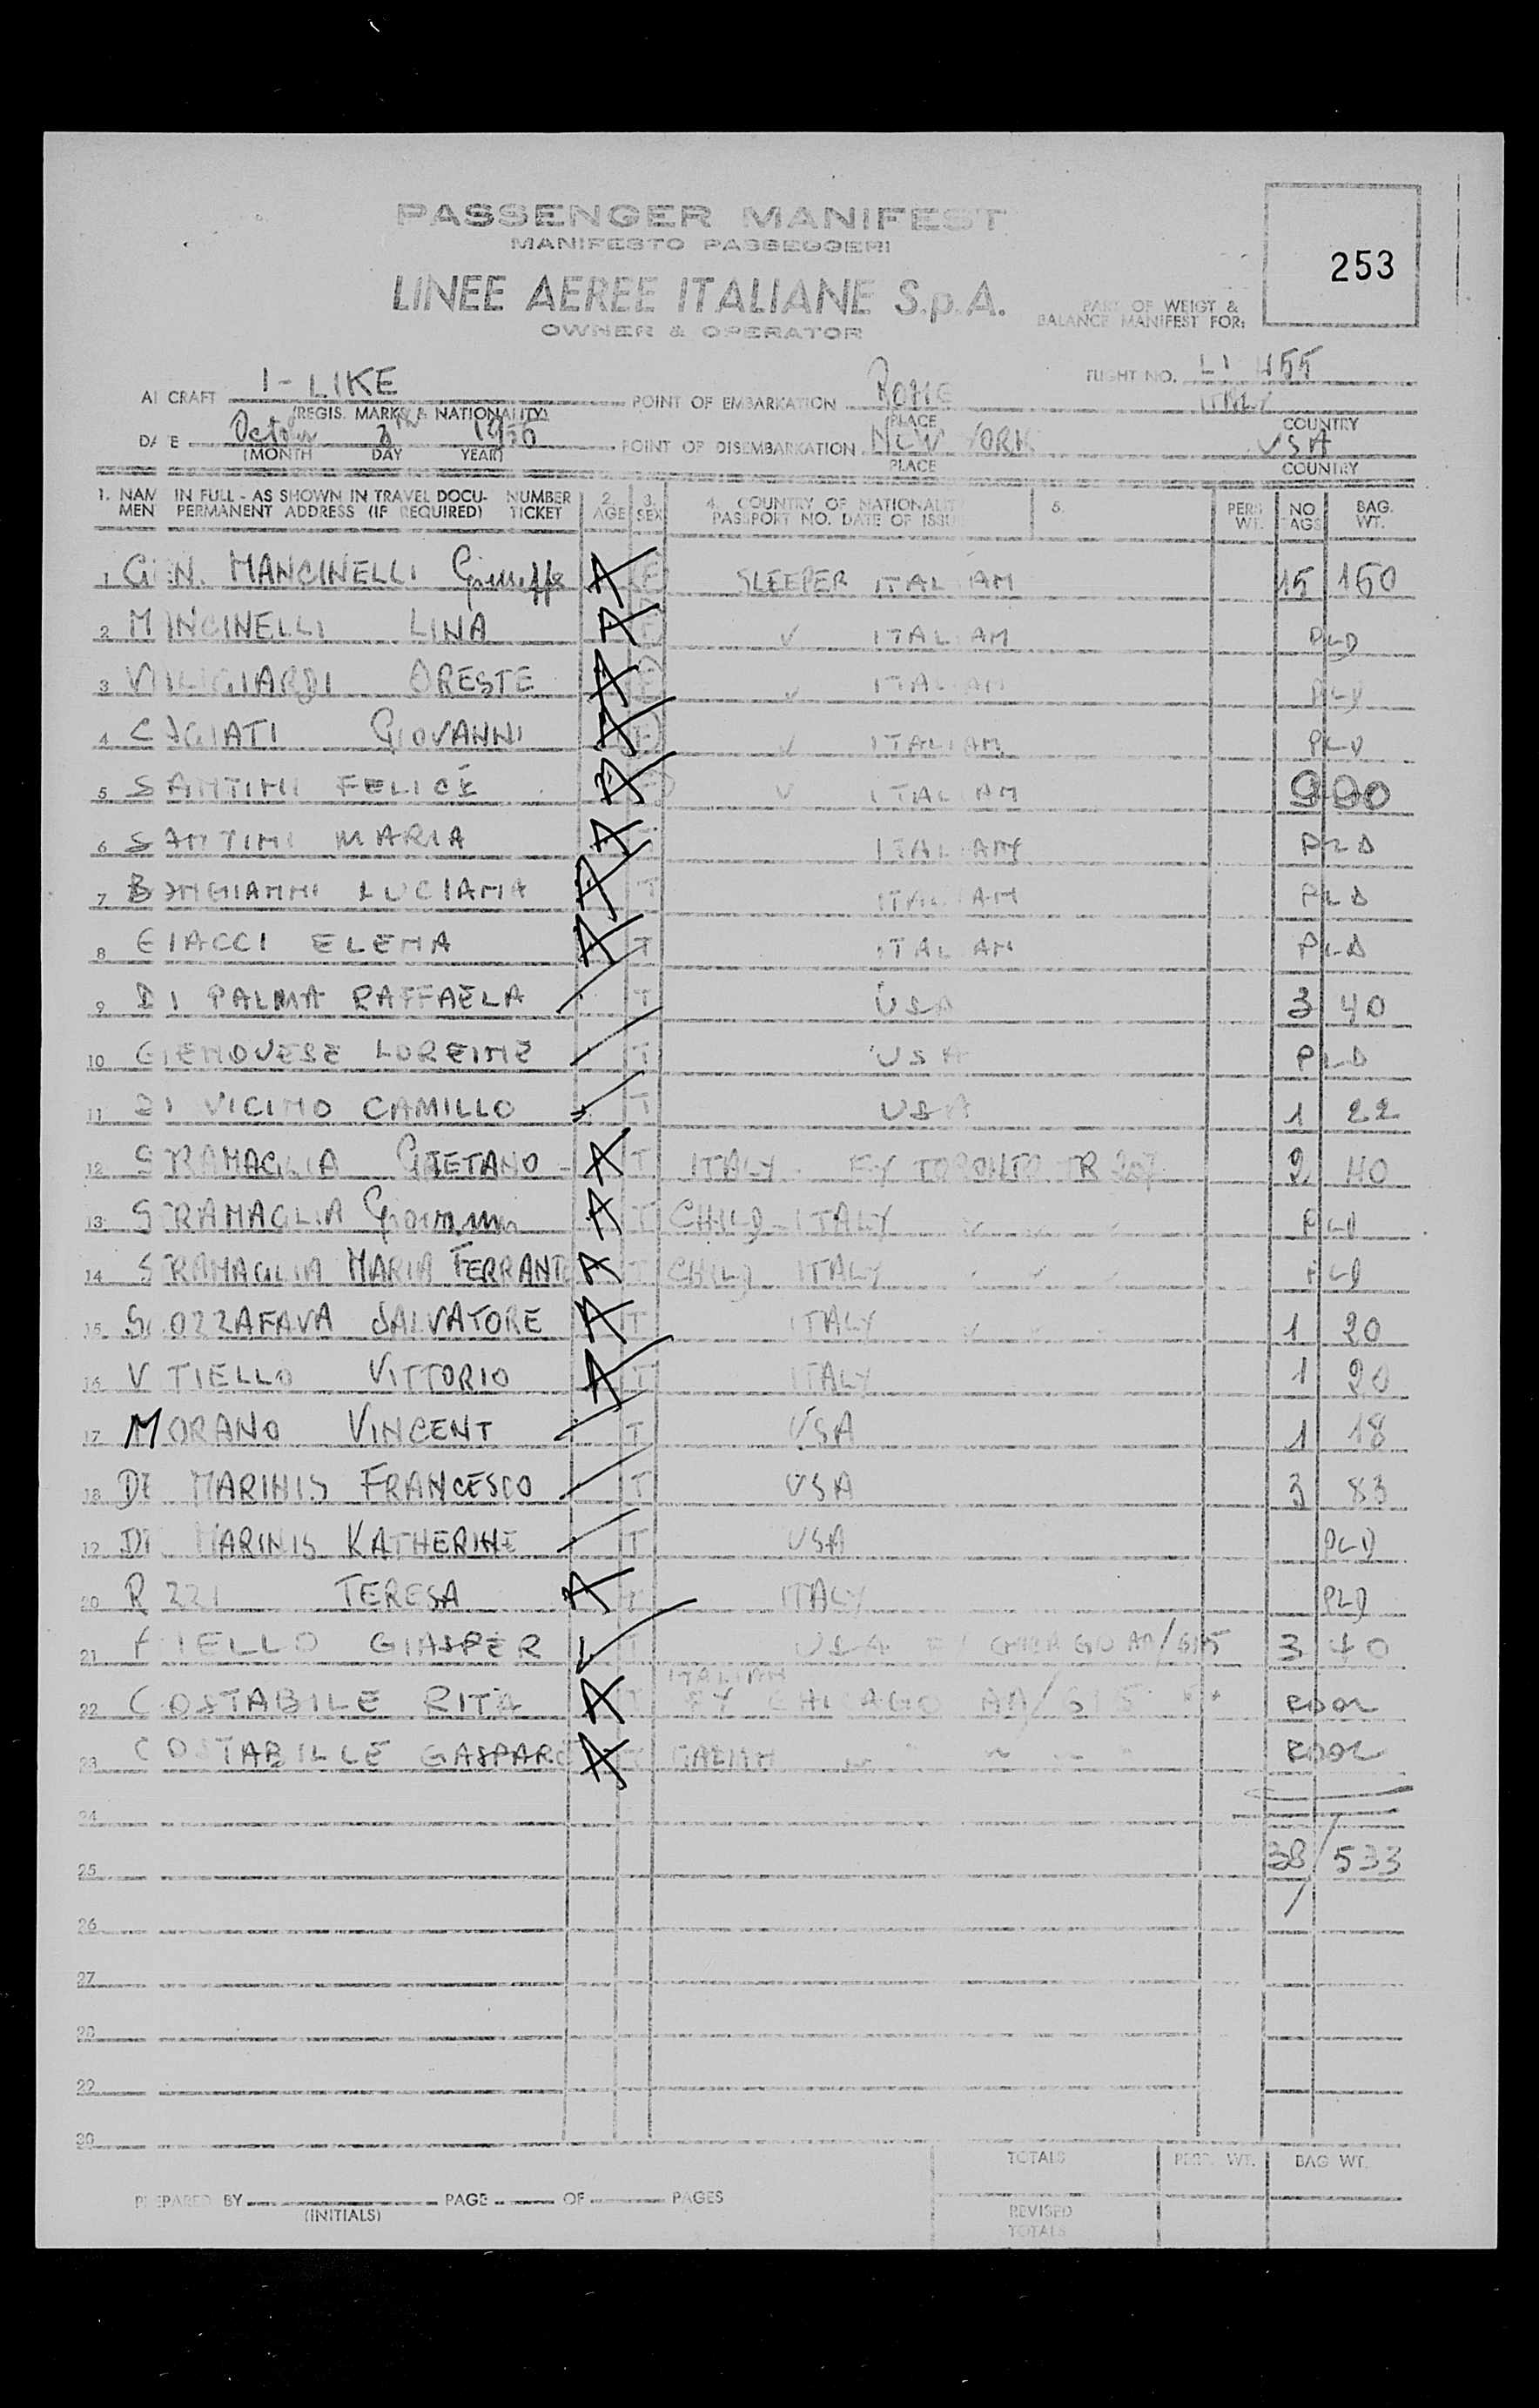 PASSENGER MANIFEST
MANIFESTO PASSEGGERI
253
LINEE AEREE ITALIANE S.p.A.
PART OF WEIGT &
BALANCE MANIFEST FOR:
OWNER & OPERATOR
AI CRAFT I-LIKE POINT OF EMBARKATION ROME ITALY FLIGHT NO. LI 455
(REGIS. MARKS & NATIONALITY) PLACE COUNTRY
DATE October 1956 POINT OF DISEMBARKATION NEW YORK USA
(MONTH DAY YEAR) PLACE COUNTRY
1. NAM IN FULL - AS SHOWN IN TRAVEL DOCU- NUMBER 2. 3. 4. COUNTRY OF NATIONALIT 5. PERS NO BAG.
MEN PERMANENT ADDRESS (IF REQUIRED) TICKET AGE SEX PASSPORT NO. DATE OF ISSU WT. AGS WT.
1 GEN. MANCINELLI Giuseppe A SLEEPER ITAL AM 15 150
2 M NCINELLI LINA A ITAL AM PLD
3 ORESTE A ITAL AM PLD
4 CAGIATI GIOVANNI A ITALIAM PLD
5 SANTINI FELICE A ITAL AM 9 90
6 SANTINI MARIA A ITAL AM PLD
7 BONGIANNI LUCIANA A T ITAL AM PLD
8 GIACCI ELENA A T ITAL AM PLD
9 DI PALMA RAFFAELA T USA 3 40
10 GENOVESE T USA PLD
11 DI VICINO CAMILLO T USA 1 22
12 STRAMAGLIA GAETANO A T ITALY FY TORONTO TR 207 2 40
13 STRAMAGLIA Giovanni A T CHILD - ITALY PLD
14 STRAMAGLIA MARIA FERRANTE A T CHILD ITALY PLD
15 SCOZZAFAVA SALVATORE A T ITALY 1 20
16 V TIELLO VITTORIO A T ITALY 1 20
17 MORANO VINCENT T USA 1 18
18 DE MARINIS FRANCESCO T USA 3 83
19 DE MARINIS KATHERINE T USA PLD
20 R ZZI TERESA A T ITALY PLD
21 AIELLO GIASPER T USA FY CHICAGO AA/615 3 40
ITALIAN
22 COSTABILE RITA A T FY CHICAGO AA/615 POOL
23 COSTABILLE GASPARE A T ITALIAN POOL
24
25 38/533
26
27
28
29
30
TOTALS PERS. WT. BAG WT.
PREPARED BY PAGE OF PAGES
(INITIALS) REVISED
TOTALS